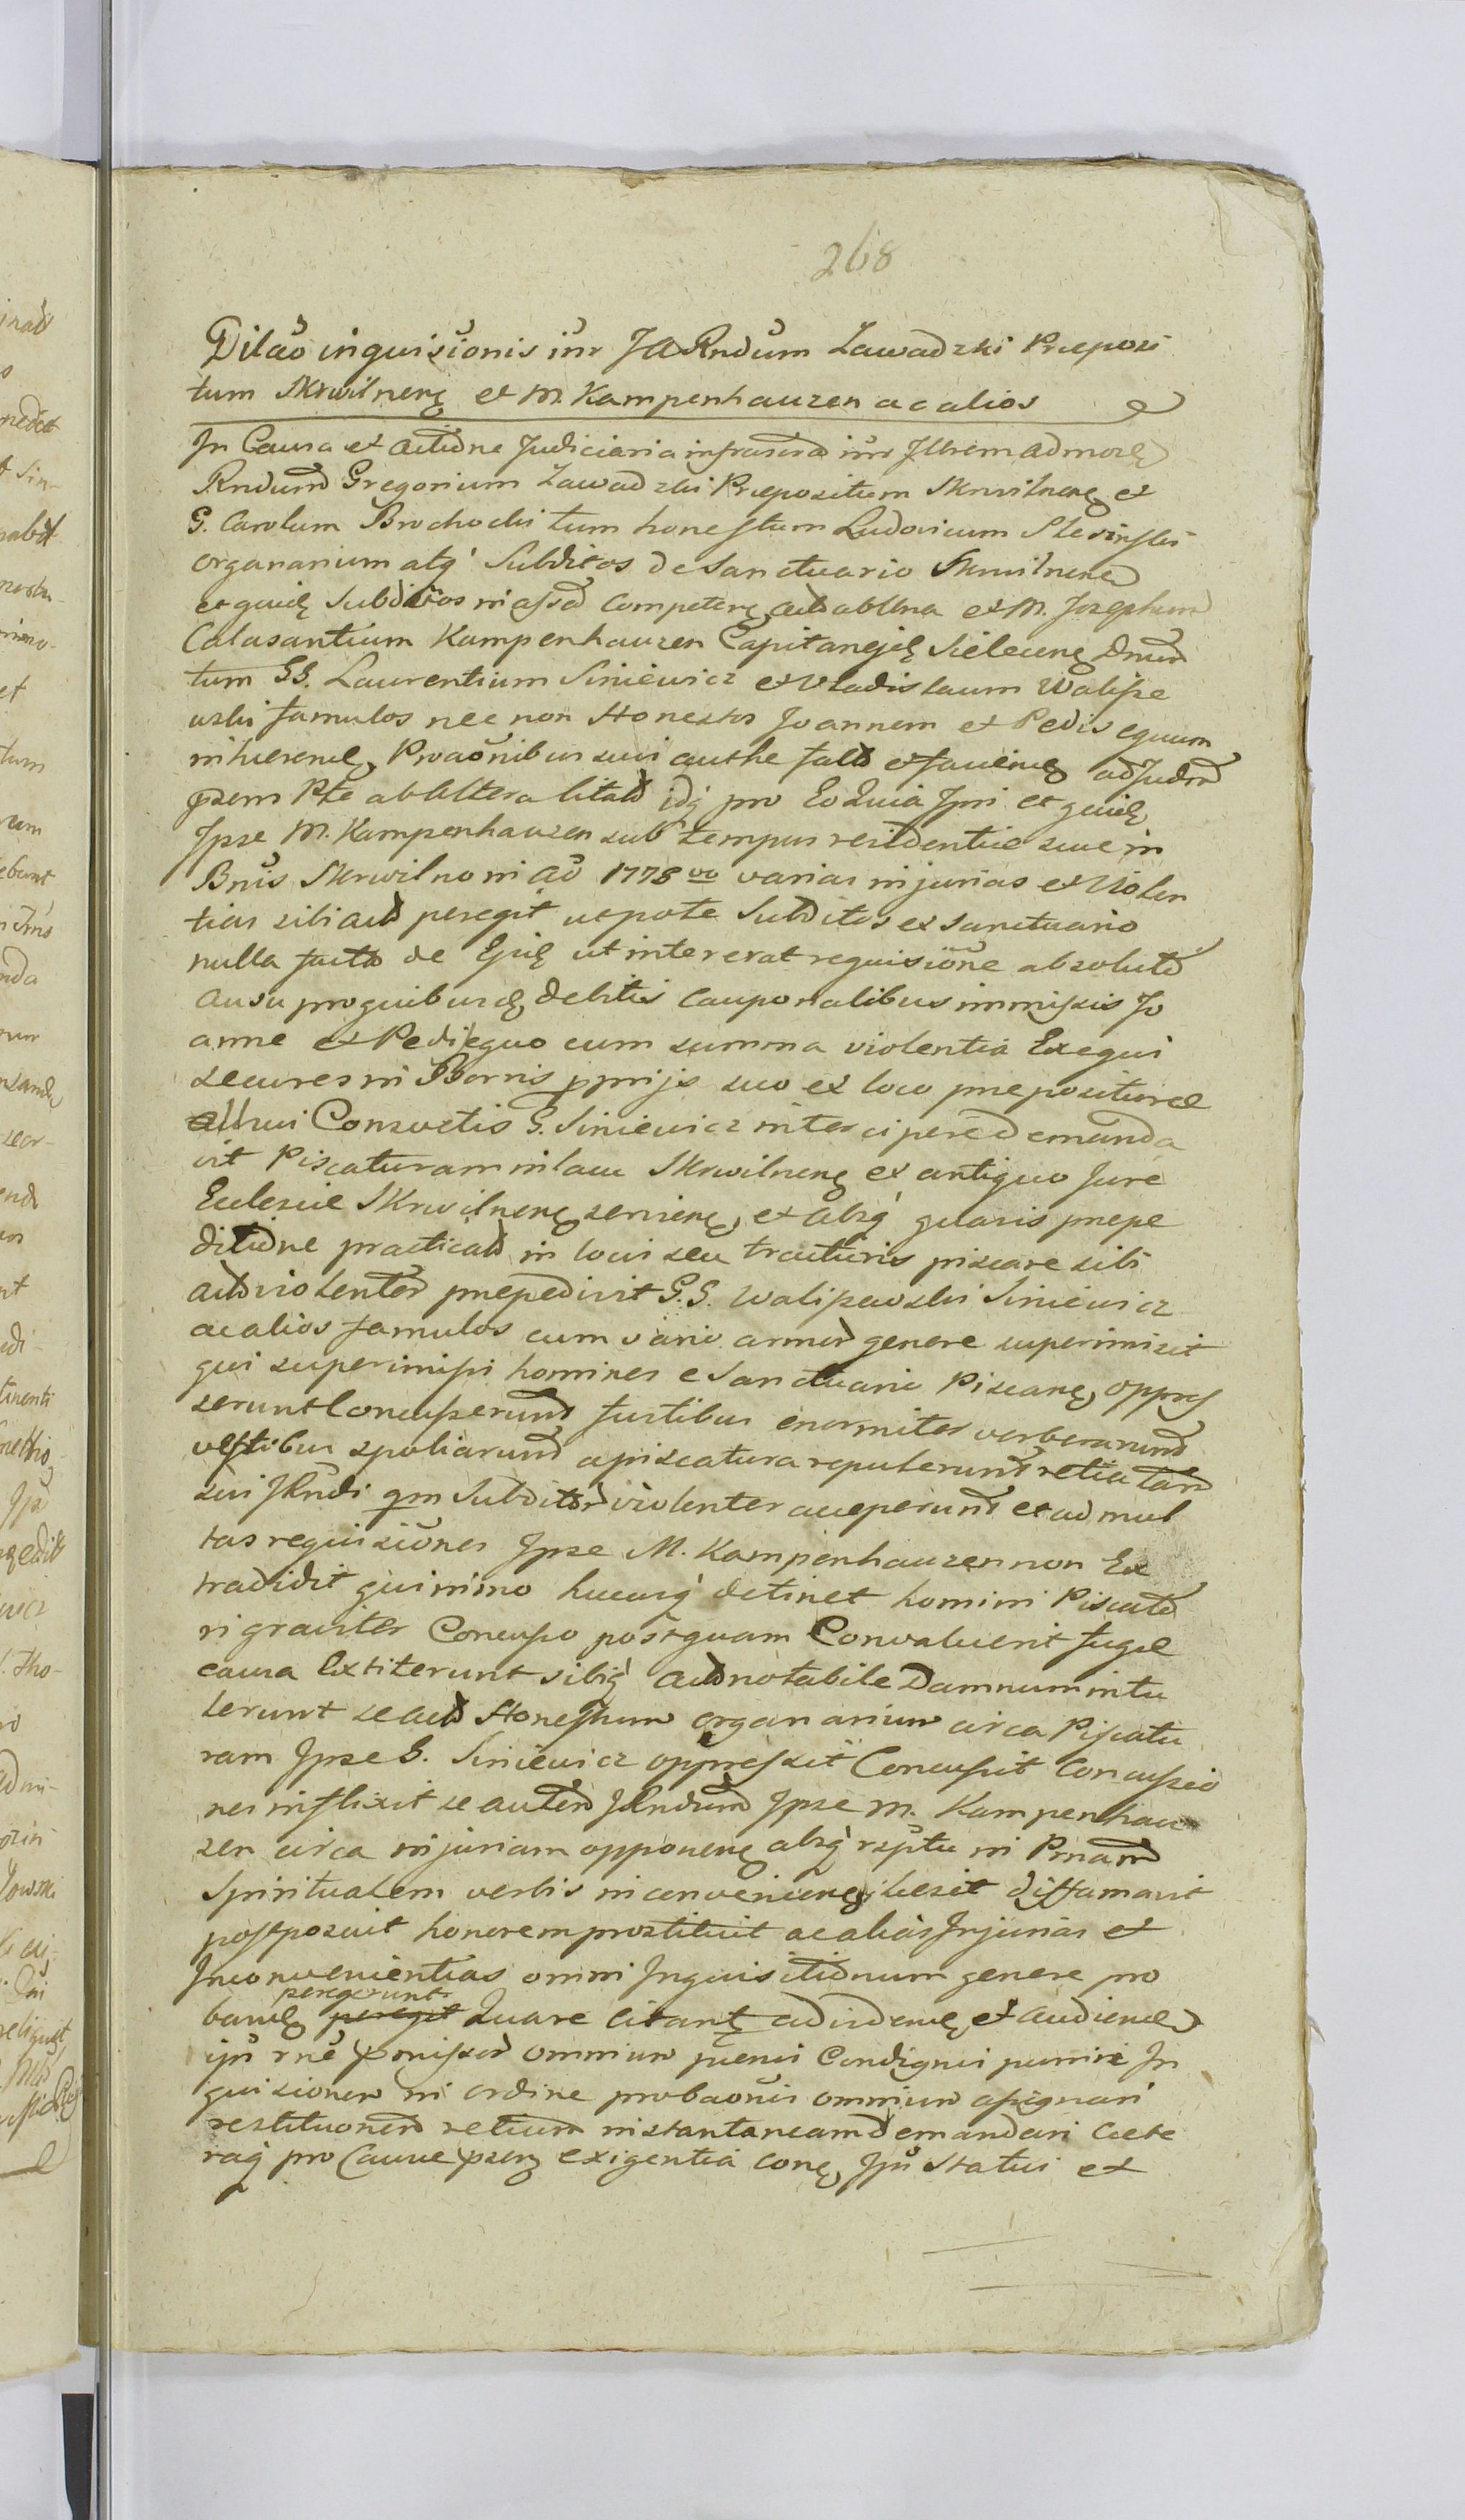 268
Dilaõ inquisiõnis inr J A Rndum Zawadzki Præposi
tum Skrwilnens et M. Kampenhauzen ac alios
In Causa et Actione Judiciaria infrascra inr Jllrem admors
Rndum Gregorium Zawadzki Præpositum Skrwilnens et
G. Carolum Brochocki tum honestum Ludovicum
organarium atq Subditos de Sanctuario Skrwilnens
et quidē Subditos in assa Competens act ab una et M. Josephum
Calasantium Kampenhauzen Capitanejū Sielecens
tum GG. Laurentium Siniewicz et Vladislaum Walisze
wski famulos nec non Honestos Joannem et Pedisequum
inhæren Proaõnibus sui authe
Pte ab altera citat idq pro Eo Quia Ipsi et quidē
Ipse M. Kampenhauzen sub tempus residentiæ suæ in
Bnis Skrwilno in aõ 1778vo varias injurias et Violen
tias sibi act peregit utpote Subditos ex Sanctuario
nulla facta de Ejus ut intererat requisiõne absoluto
ausu pro quibusd debitis cauponalibus immissis Jo
anne et Pedisequo cum summa violentia Exequi
secures in Borris pprijs suo ex loco præposituræ
Consvetis G. Siniewicz intercipere demanda
vit Piscaturam in lacu Skrwilnens ex antiquo Jure
Ecclesiæ Skrwilnens serviens et absq quavis præpe
ditione practicat in locis seu tracturis piscare sibi
act violenter præpedivit G.G. Waliszewski Siniewicz
ac alios famulos cum vario armor genere superimisit
qui superimissi homines e Sanctuario Piscans oppres
serunt Concusserunt fustibus enormiter verberarunt
vestibus spoliarunt a piscatura repulerunt retia tam
sui JRndi qm Subditor violenter acceperunt et ad mul
tas requisiõnes Ipse M. Kampenhauzen non Ex
tradidit quinimo hucusq detinet homini Piscato
ri graviter Concusso postquam Convaluerit fugæ
causa Extiterunt sibiq act notabile Damnum intu
lerunt se act Honestum organarium circa Piscatu
ram Ipse G. Siniewicz oppressit Concussit Concussio
nes inflixit se autem JRndum Ipse M. Kampenhau
zen circa injuriam opponens absq rsptu in Prnam
Spiritualem verbis inconveniens læsit diffamavit
postposuit honorem prostituit ac alias Injurias et
Inconvenientias omni Inquisitionum genere pro
band peregerunt peregit Quare citant ad vidend et audiend
ipŭ rne præmissor omnium pænis Condignis puniri In
quisiõnem in ordine probaõnis omnium assignari
restituõnem retium instantaneam demandari Cæte
raq pro Causæ exigentia Ipŭ Statui et